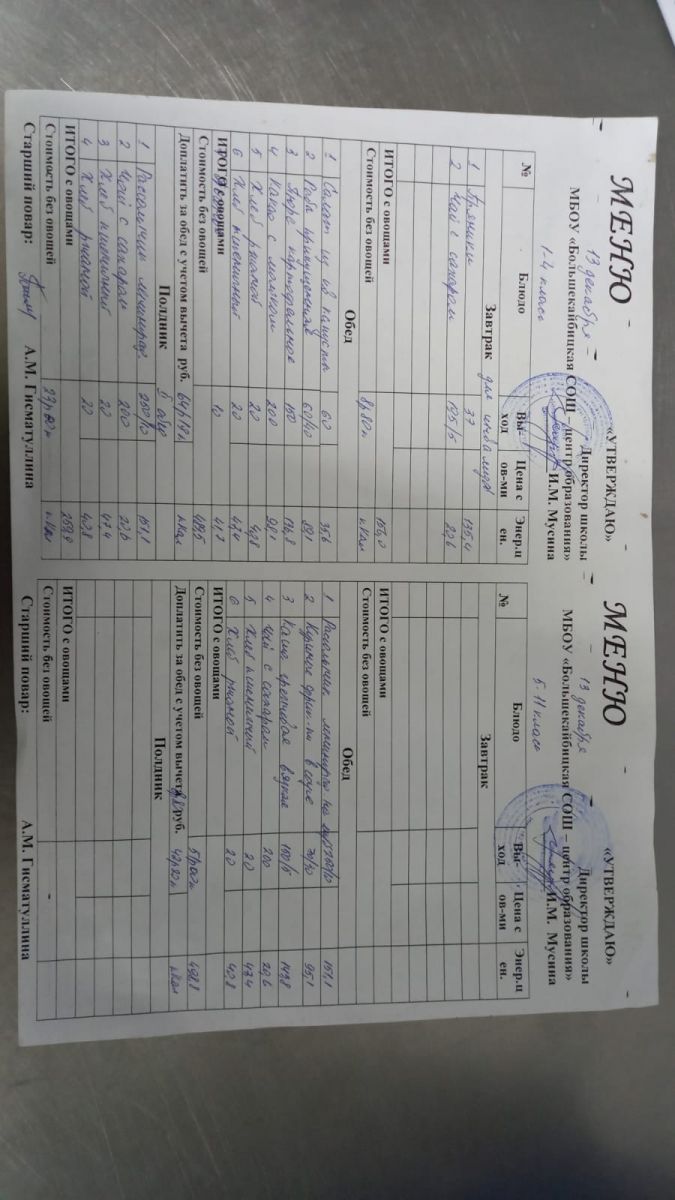 МЕНЮ
«УТВЕРЖДАЮ»
Директор школы
13 декабря
МБОУ «Большекайбицкая СОШ – центр образования»
1-4 класс
И.М. Мусина
№ Блюдо Вы-ход Цена с ов-ми Энер.ц ен.
Завтрак для инвалидов
1 Пряники 37 135,4
2 Чай с сахаром 195/5 22,6
ИТОГО с овощами 158,0
Стоимость без овощей 8р80к ккал
Обед
1 Салат из св капусты 60 35,6
2 Рыба припущенная 60/40 89,1
3 Пюре картофельное 150 134,8
4 Какао с молоком 200 98,1
5 Хлеб ржаной 20 40,8
6 Хлеб пшеничный 20 47,4
ИТОГО с овощами 10 41,7
Стоимость без овощей 487,5
Доплатить за обед с учетом вычета руб. 64р19к ккал
Полдник
1 Рассольник ленинград 250/10 151,1
2 Чай с сахаром 200 22,6
3 Хлеб пшеничный 20 47,4
4 Хлеб ржаной 20 40,8
ИТОГО с овощами 259,9
Стоимость без овощей ккал
Старший повар: А.М. Гисматуллина
МЕНЮ
«УТВЕРЖДАЮ»
Директор школы
13 декабря
МБОУ «Большекайбицкая СОШ – центр образования»
5-11 класс
И.М. Мусина
№ Блюдо Вы-ход Цена с ов-ми Энер.ц ен.
Завтрак
ИТОГО с овощами
Стоимость без овощей
Обед
1 Рассольник ленингр на 151,1
2 в соусе 95,1
3 Каша гречневая вязкая 150/5 143,8
4 Чай с сахаром 200 22,6
5 Хлеб пшеничный 20 47,4
6 Хлеб ржаной 20 40,8
ИТОГО с овощами
Стоимость без овощей 498,8
Доплатить за обед с учетом вычета руб. ккал
Полдник
ИТОГО с овощами
Стоимость без овощей -
Старший повар: А.М. Гисматуллина